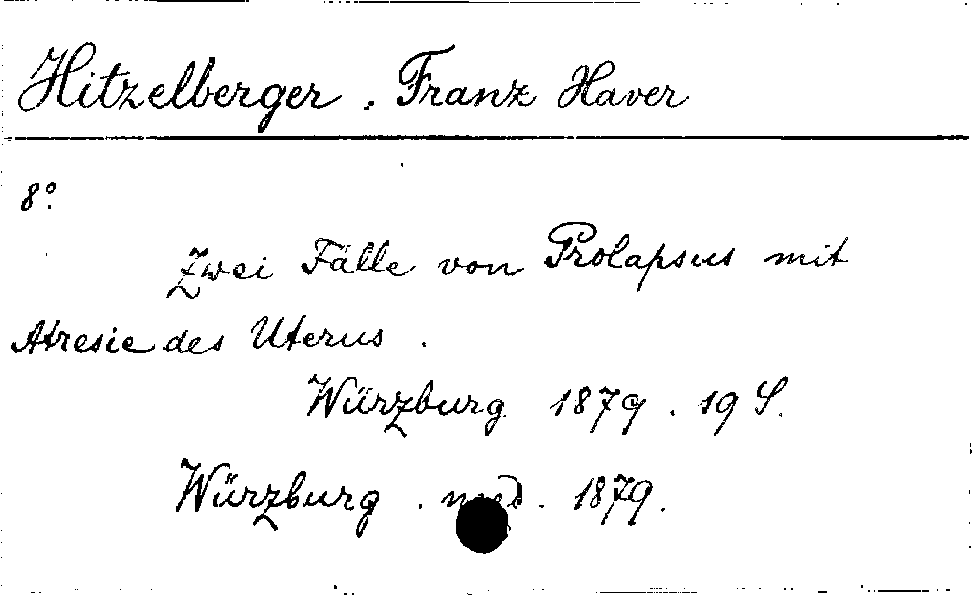 Hitzelberger, Franz Xaver
8°.
Zwei Fälle von Prolapsus mit
Atresie des Uterus.
Würzburg 1879. 19 S.
Würzburg. med. 1879.